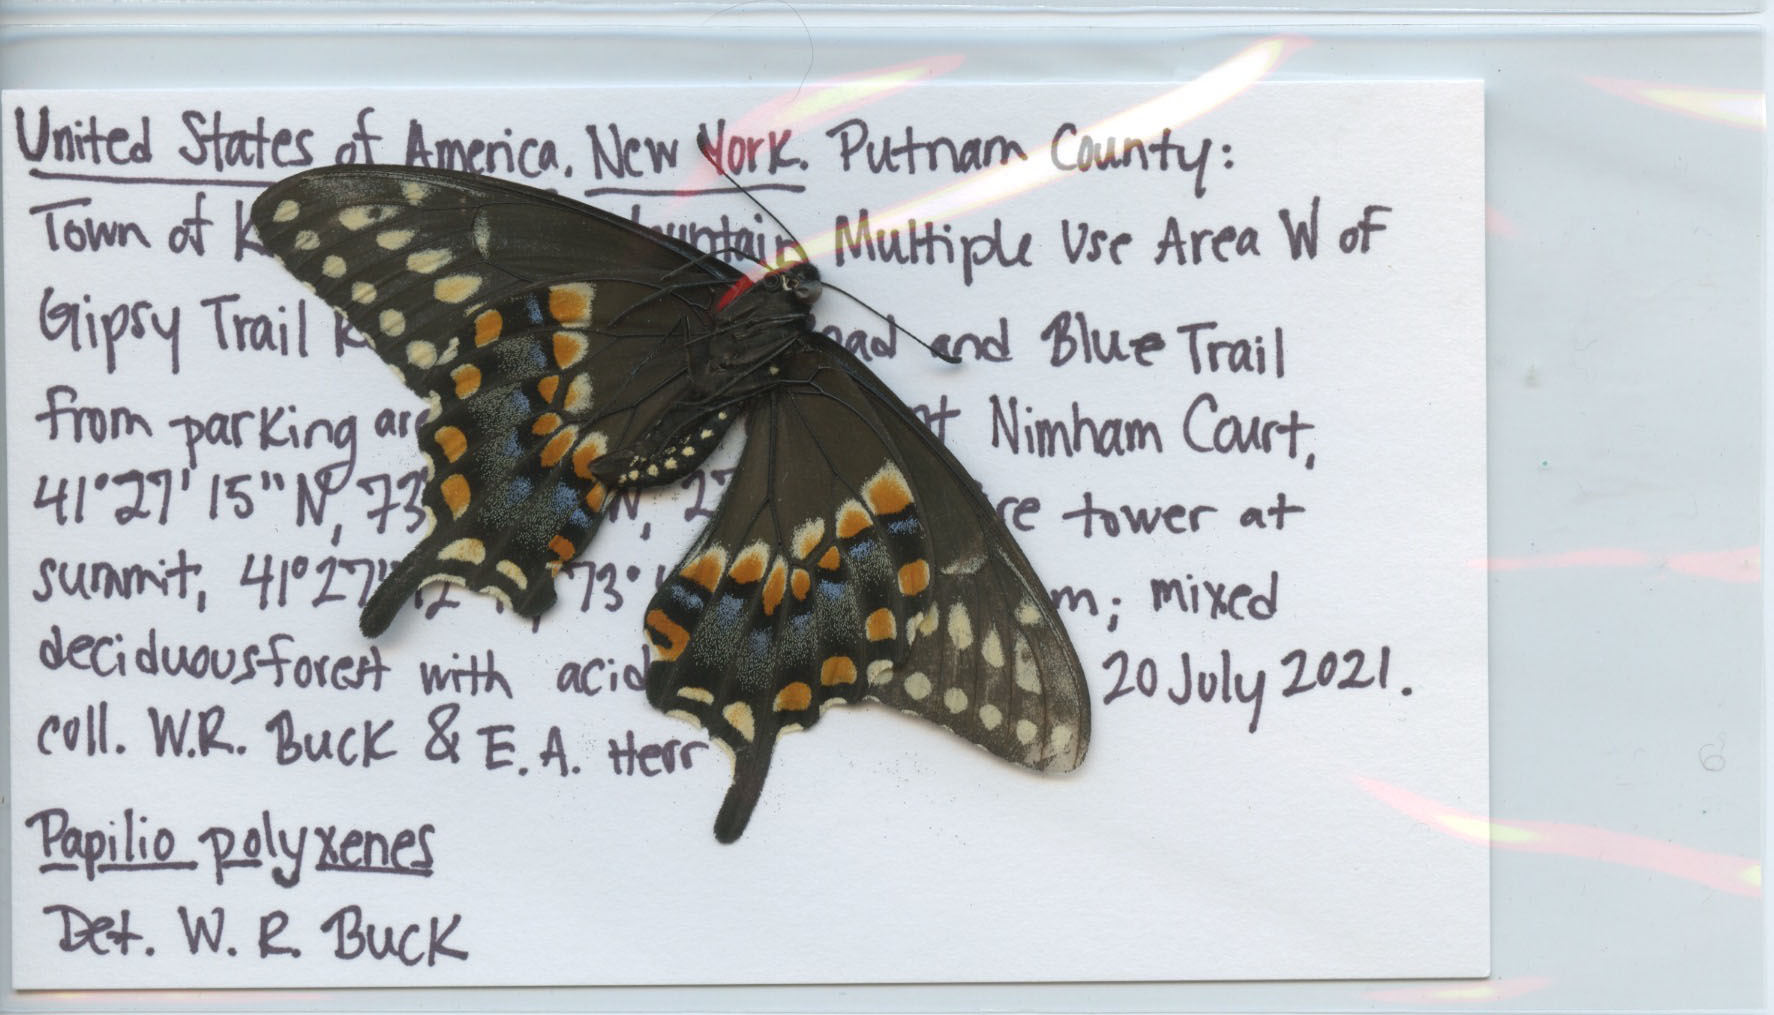 United States of America. New York. Putnam County:
Town of K ountain Multiple Use Area W of
Gipsy Trail R oad and Blue Trail
from parking are at Nimham Court,
41°27'15"N, 73 N, 27 re tower at
summit, 41°27' 73° m; mixed
deciduous forest with acid 20 July 2021.
coll. W.R. Buck & E. A. Herr
Papilio polyxenes
Det. W. R. Buck
6